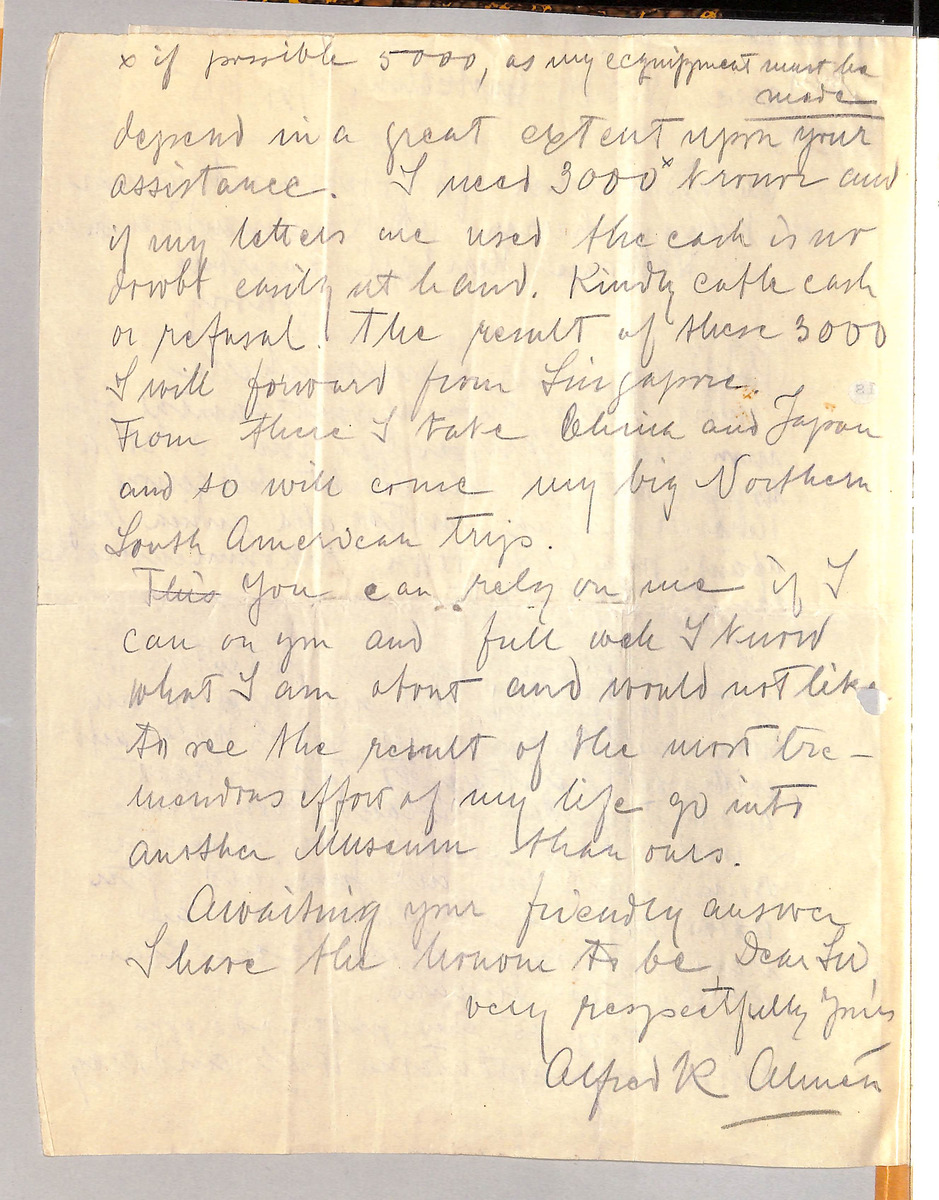 x if possible 5000, as my ecquippment must be
made
depend in a great extent upon your
assistance. I need 3000x Kronor and
if my letters are used the cash is no
doubt easily at hand. Kindly cable cash
or refusal! The result of these 3000
I will forward from Singapore.
From there I take China and Japan
and so will come my big Northern
South American trip.
This You can rely on me if I
can on you and full well I know
what I am about and would not like
to see the result of the most tre-
mendous effort of my life go into
another Museum than ours.
Awaiting your friendly answer
I have the honour to be, Dear Sir,
very respectfully Yours
Alfred R Almén